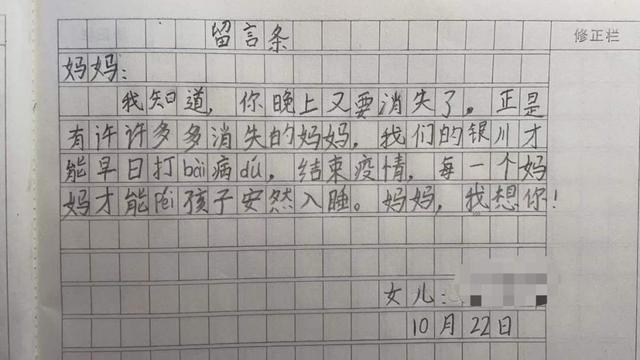 留言条
修正栏
妈妈：
我知道，你晚上又要消失了。正是
有许许多多消失的妈妈，我们的银川才
能早日打bài病dú，结束疫情，每一个妈
妈才能péi孩子安然入睡。妈妈，我想你！
女儿：
10月22日